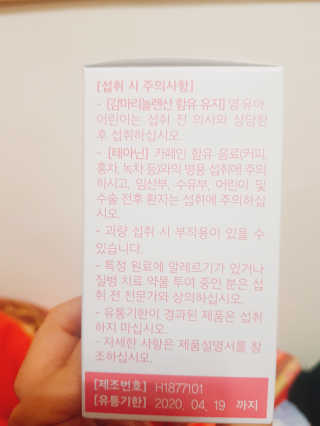 [섭취 시 주의사항]
- [감마리놀렌산 함유 유지] 영·유아,
어린이는 섭취 전 의사와 상담한
후 섭취하십시오.
- [테아닌] 카페인 함유 음료(커피,
홍차, 녹차 등)와의 병용 섭취에 주의
하시고, 임산부, 수유부, 어린이 및
수술 전후 환자는 섭취에 주의하십
시오.
- 과량 섭취 시 부작용이 있을 수
있습니다.
- 특정 원료에 알레르기가 있거나
질병 치료 약물 투여 중인 분은 섭
취 전 전문가와 상의하십시오.
- 유통기한이 경과된 제품은 섭취
하지 마십시오.
- 자세한 사항은 제품설명서를 참
조하십시오.
[제조번호] H1877101
[유통기한] 2020. 04. 19 까지